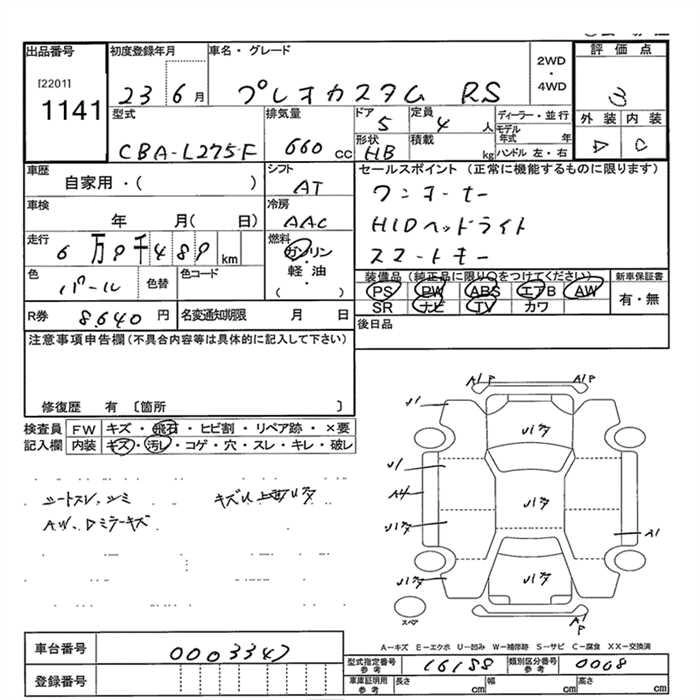 出品番号 初度登録年月 車名・グレード
[2201] 1141
23 6月 プレオカスタム RS
2WD・4WD
評価点
3
外装 内装
D C
型式 排気量 ドア 定員 ディーラー・並行
CBA-L275F 660cc 5 4人
形状 積載 モデル年式 年
HB kg ハンドル 左・右
車歴 シフト セールスポイント (正常に機能するものに限ります)
自家用・( ) AT
ワンオーナー
車検 冷房
年 月( 日) AAC
HIDヘッドライト
走行 燃料
6万9千489km ガソリン・軽油( )
スマートキー
色 色替 色コード
パール
装備品(純正品に限り○をつけてください) 新車保証書
PS PW ABS エアB AW 有・無
SR ナビ TV カワ
R券 8,640円 名変通知期限 月 日
後日品
注意事項申告欄(不具合内容等は具体的に記入して下さい)
修復歴 有 〔箇所 〕
検査員 FW キズ・飛石・ヒビ割・リペア跡・×要
記入欄 内装 キズ・汚レ・コゲ・穴・スレ・キレ・破レ
シートスレ、シミ
A.W、Dミラーキズ
A1P A1P
U1
U1
A4
A1
A1P
スペア
A-キズ E-エクボ U-凹み W-補修跡 S-サビ C-腐食 XX-交換済
車台番号 0003347
登録番号
型式指定番号 参考 16188 類別区分番号 参考 0008
車庫証明用 参考 長さ cm 幅 cm 高さ cm